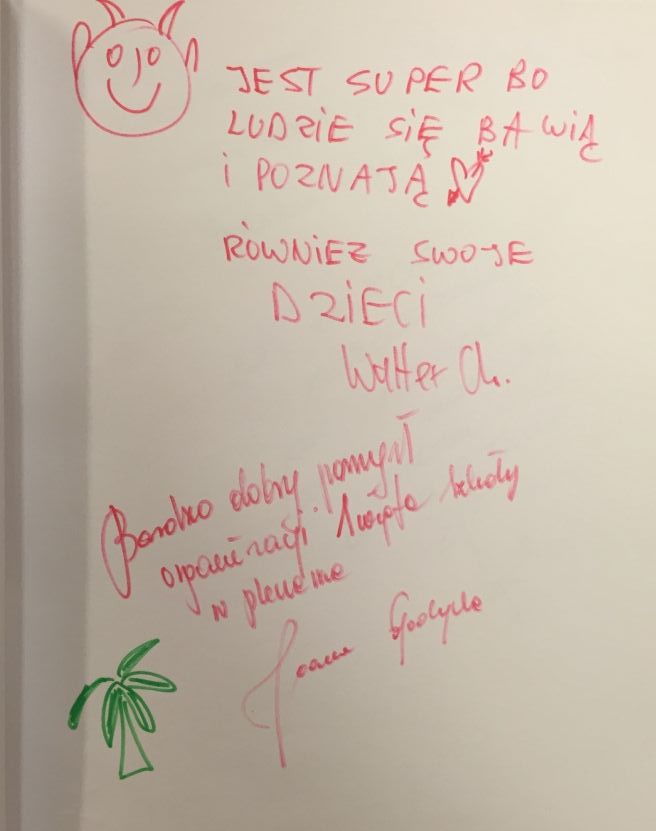 JEST SUPER BO
LUDZIE SIĘ BAWIĄ
i POZNAJĄ
RÓWNIEŻ SWOJE
DZIECI
Walter Ch.
Bardzo dobry pomysł
organizacji Święta szkoły
w plenerze